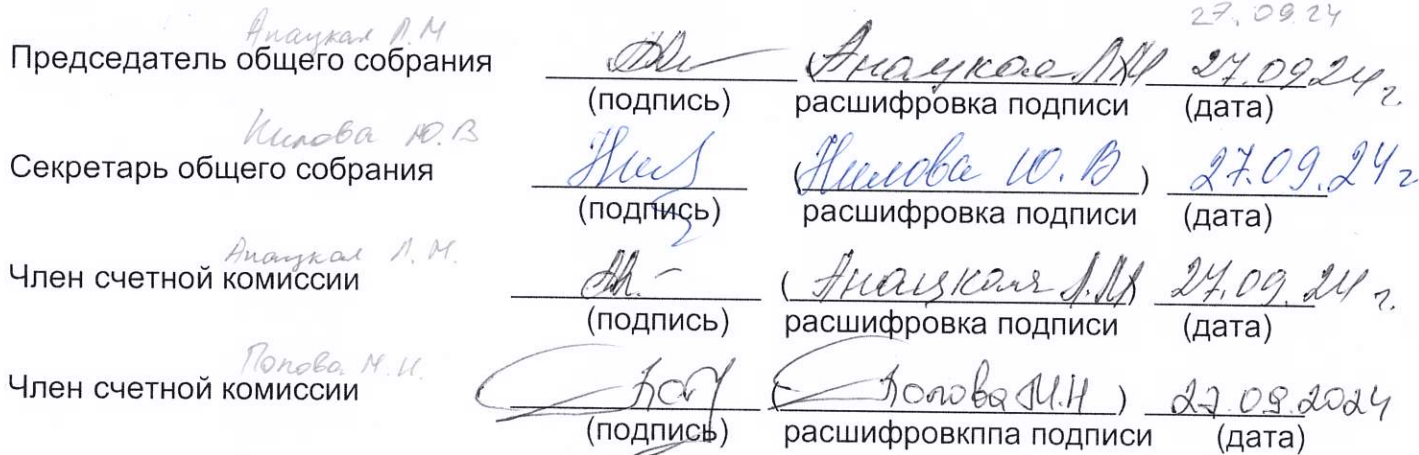 27.09.24
Анацкая Л.М
Председатель общего собрания (Анацкая Л.М 27.09.24 г.
(подпись) расшифровка подписи (дата)
Нилова Ю.В
Секретарь общего собрания (Нилова Ю.В) 27.09.24 г
(подпись) расшифровка подписи (дата)
Анацкая Л.М.
Член счетной комиссии (Анацкая Л.М) 27.09.24 г.
(подпись) расшифровка подписи (дата)
Попова М.Н.
Член счетной комиссии (Попова М.Н) 27.09.2024
(подпись) расшифровкппа подписи (дата)